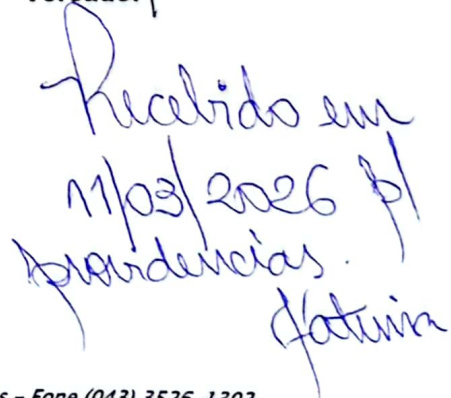 Recebido em
11/03/2026 p/
providencias.
Fatima
s – Fone (043) 3526-1302